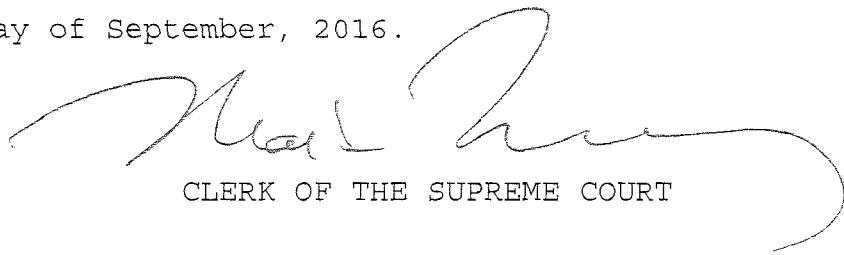 ay of September, 2016.
CLERK OF THE SUPREME COURT